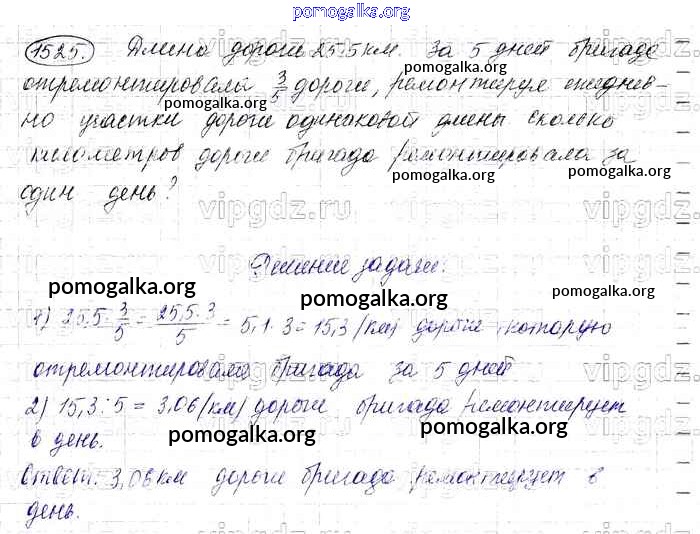 pomogalka.org
1525. Длина дороги 25.5 км. За 5 дней бригада
pomogalka.org
отремонтировала 3/5 дороги, ремонтируя ежеднев-
pomogalka.org pomogalka.org
но участки дороги одинаковой длины сколько
километров дороги бригада ремонтировала за
pomogalka.org
один день?
vipgdz.ru vipgdz.ru vipgdz.ru
Решение задачи:
pomogalka.org pomogalka.org pomogalka.org
1) 25.5 · 3/5 = 25,5·3/5 = 5,1·3 = 15,3 (км) дороги, которую
отремонтировала бригада за 5 дней
2) 15,3 : 5 = 3,06 (км) дороги бригада ремонтирует
в день.
pomogalka.org pomogalka.org
Ответ: 3,06 км дороги бригада ремонтирует в
день.
pomogalka.org
vipgdz.ru vipgdz.ru vipgdz.ru